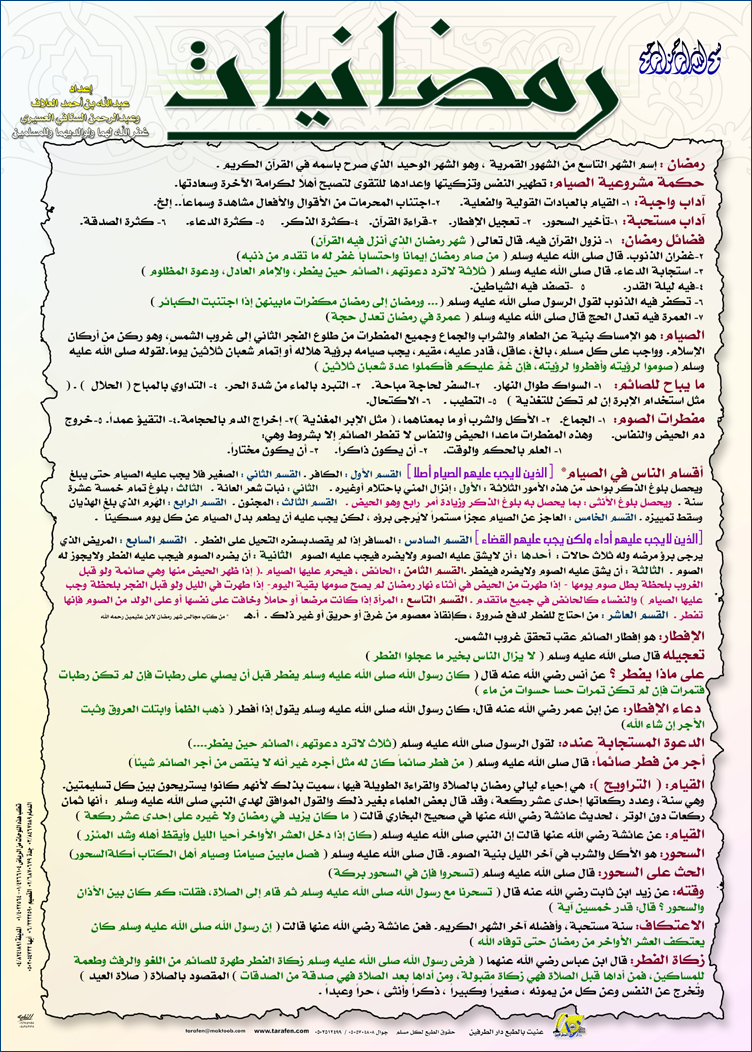 بسم الله الرحمن الرحيم
رمضانيات
إعداد
عبدالله بن أحمد العلاف
وعبدالرحمن السقافي العسيري
غفر الله لهما ولوالديهما وللمسلمين
رمضان : إسم الشهر التاسع من الشهور القمرية ، وهو الشهر الوحيد الذي صرح باسمه في القرآن الكريم .
حكمة مشروعية الصيام: تطهير النفس وتزكيتها وإعدادها للتقوى لتصبح أهلاً لكرامة الآخرة وسعادتها.
آداب واجبة: ١- القيام بالعبادات القولية والفعلية. ٢-اجتناب المحرمات من الأقوال والأفعال مشاهدة وسماعاً.. إلخ.
آداب مستحبة: ١-تأخير السحور. ٢- تعجيل الإفطار. ٣-قراءة القرآن. ٤-كثرة الذكر. ٥- كثرة الدعاء. ٦- كثرة الصدقة.
فضائل رمضان: ١- نزول القرآن فيه. قال تعالى ( شهر رمضان الذي أنزل فيه القرآن)
٢-غفران الذنوب. قال صلى الله عليه وسلم ( من صام رمضان إيمانا واحتساباً غفر له ما تقدم من ذنبه)
٣- استجابة الدعاء. قال صلى الله عليه وسلم ( ثلاثة لاترد دعوتهم، الصائم حين يفطر، والإمام العادل، ودعوة المظلوم )
٤-فيه ليلة القدر. ٥ -تصفد فيه الشياطين.
٦- تكفر فيه الذنوب لقول الرسول صلى الله عليه وسلم (... ورمضان إلى رمضان مكفرات مابينهن إذا اجتنبت الكبائر )
٧- العمرة فيه تعدل الحج قال صلى الله عليه وسلم ( عمرة في رمضان تعدل حجة)
الصيام: هو الإمساك بنية عن الطعام والشراب والجماع وجميع المفطرات من طلوع الفجر الثاني إلى غروب الشمس، وهو ركن من أركان
الإسلام. وواجب على كل مسلم، بالغ، عاقل، قادر عليه، مقيم، يجب صيامه برؤية هلاله أو إتمام شعبان ثلاثين يوما.لقوله صلى الله عليه
وسلم (صوموا لرؤيته وأفطروا لرؤيته، فإن غُمَّ عليكم فأكملوا عدة شعبان ثلاثين )
ما يباح للصائم: ١- السواك طوال النهار. ٢-السفر لحاجة مباحة. ٣- التبرد بالماء من شدة الحر. ٤- التداوي بالمباح ( الحلال ) . (
مثل استخدام الإبرة إن لم تكن للتغذية ) ٥- التطيب . ٦- الاكتحال.
مفطرات الصوم: ١- الجماع. ٢- الأكل والشرب أو ما بمعناهما، ( مثل الإبر المغذية )٣- إخراج الدم بالحجامة.٤- التقيؤ عمداً. ٥-خروج
دم الحيض والنفاس. وهذه المفطرات ماعدا الحيض والنفاس لا تفطر الصائم إلا بشروط وهي:
١- العلم بالحكم والوقت. ٢- أن يكون ذاكراً. ٣- أن يكون مختاراً.
أقسام الناس في الصيام* [ الذين لايجب عليهم الصيام أصلا ] القسم الأول: الكافر. القسم الثاني: الصغير فلا يجب عليه الصيام حتى يبلغ
ويحصل بلوغ الذكر بواحد من هذه الأمور الثلاثة : الأول : إنزال المني باحتلام أوغيره . الثاني : نبات شعر العانة . الثالث : بلوغ تمام خمسة عشرة
سنة . ويحصل بلوغ الأنثى : بما يحصل به بلوغ الذكر وزيادة أمر رابع وهو الحيض . القسم الثالث : المجنون . القسم الرابع : الهرم الذي بلغ الهذيان
وسقط تمييزه . القسم الخامس : العاجز عن الصيام عجزاً مستمراً لايُرجى برؤه ، لكن يجب عليه أن يطعم بدل الصيام عن كل يوم مسكيناً .
[الذين لايجب عليهم أداء ولكن يجب عليهم القضاء ] القسم السادس : المسافر إذا لم يقصد بسفره التحيل على الفطر . القسم السابع : المريض الذي
يرجى برؤ مرضه وله ثلاث حالات : أحدها : أن لايشق عليه الصوم ولايضره فيجب عليه الصوم الثانية : أن يضره الصوم فيجب عليه الفطر ولايجوز له
الصوم . الثالثة : أن يشق عليه الصوم ولايضره فيفطر .القسم الثامن : الحائض ، فيحرم عليها الصيام .( إذا ظهر الحيض منها وهي صائمة ولو قبل
الغروب بلحظة بطل صوم يومها - إذا طهرت من الحيض في أثناء نهار رمضان لم يصح صومها بقية اليوم- إذا طهرت في الليل ولو قبل الفجر بلحظة وجب
عليها الصيام ) والنفساء كالحائض في جميع ماتقدم . القسم التاسع : المرأة إذا كانت مرضعاً أو حاملا وخافت على نفسها أو على الولد من الصوم فإنها
تفطر . القسم العاشر : من احتاج للفطر لدفع ضرورة ، كإنقاذ معصوم من غرق أو حريق أو غير ذلك . أ.هـ * من كتاب مجالس شهر رمضان لابن عثيمين رحمه الله
الإفطار: هو إفطار الصائم عقب تحقق غروب الشمس.
تعجيله قال صلى الله عليه وسلم ( لا يزال الناس بخير ما عجلوا الفطر )
على ماذا يفطر ؟ عن أنس رضي الله عنه قال ( كان رسول الله صلى الله عليه وسلم يفطر قبل أن يصلي على رطبات فإن لم تكن رطبات
فتمرات فإن لم تكن تمرات حسا حسوات من ماء )
دعاء الإفطار: عن إبن عمر رضي الله عنه قال: كان رسول الله صلى الله عليه وسلم يقول إذا أفطر ( ذهب الظمأ وابتلت العروق وثبت
الأجر إن شاء الله)
الدعوة المستجابة عنده: لقول الرسول صلى الله عليه وسلم (ثلاث لاترد دعوتهم، الصائم حين يفطر....)
أجر من فطر صائماً: قال صلى الله عليه وسلم ( من فطر صائماً كان له مثل أجره غير أنه لا ينقص من أجر الصائم شيئاً)
القيام: ( التراويح ): هي إحياء ليالي رمضان بالصلاة والقراءة الطويلة فيها، سميت بذلك لأنهم كانوا يستريحون بين كل تسليمتين.
وهي سنة، وعدد ركعاتها إحدى عشر ركعة، وقد قال بعض العلماء بغير ذلك والقول الموافق لهدي النبي صلى الله عليه وسلم : أنها ثمان
ركعات دون الوتر ، لحديث عائشة رضي الله عنها في صحيح البخاري قالت ( ما كان يزيد في رمضان ولا غيره على إحدى عشر ركعة )
القيام: عن عائشة رضي الله عنها قالت إن النبي صلى الله عليه وسلم (كان إذا دخل العشر الأواخر أحيا الليل وأيقظ أهله وشد المنزر )
السحور: هو الأكل والشرب في آخر الليل بنية الصوم. قال صلى الله عليه وسلم ( فصل مابين صيامنا وصيام أهل الكتاب أكلةالسحور)
الحث على السحور: قال صلى الله عليه وسلم (تسحروا فإن في السحور بركة)
وقته: عن زيد ابن ثابت رضي الله عنه قال ( تسحرنا مع رسول الله صلى الله عليه وسلم ثم قام إلى الصلاة، فقلت: كم كان بين الأذان
والسحور ؟ قال: قدر خمسين آية )
الاعتكاف: سنة مستحبة، وأفضله آخر الشهر الكريم. فعن عائشة رضي الله عنها قالت ( إن رسول الله صلى الله عليه وسلم كان
يعتكف العشر الأواخر من رمضان حتى توفاه الله )
زكاة الفطر: قال ابن عباس رضي الله عنهما ( فرض رسول الله صلى الله عليه وسلم زكاة الفطر طهرة للصائم من اللغو والرفث وطعمة
للمساكين، فمن أداها قبل الصلاة فهي زكاة مقبولة، ومن أداها بعد الصلاة فهي صدقة من الصدقات ) المقصود بالصلاة ( صلاة العيد )
وتُخرج عن النفس وعن كل من يمونه ، صغيراً وكبيراً ، ذكراً وأنثى ، حراً وعبداً .
عنيت بالطبع دار الطرفين حقوق الطبع لكل مسلم www.tarafen.com tarafen@maktoob.com